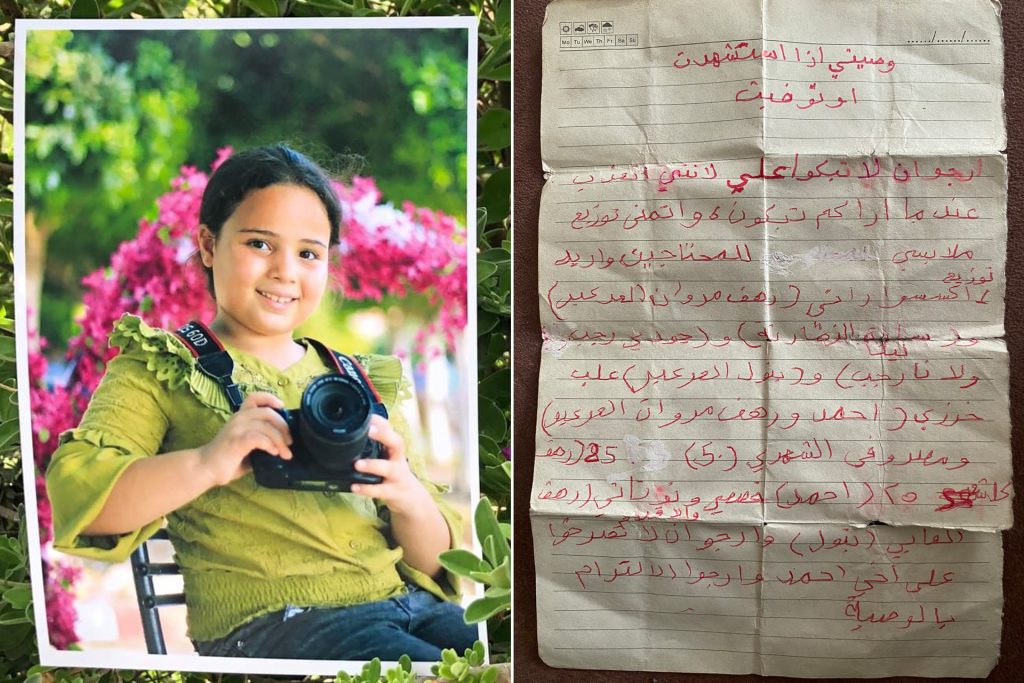 EOS 60D
Canon
Mo Tu We Th Fr Sa Su
....../....../......
وصيتي اذا استشهدت
او توفيت
ارجو ان لا تبكوا علي لانني اتعذب
عندما اراكم تبكون، واتمنى توزيع
ملابسي للمحتاجين واريد
توزيع
اكسسوراتي (رهف مروان العرعير)
و(سارة) و(جودي رجب)
لينا
ولانا رجب) و(بتول العرعير) علب
خرزي (احمد ورهف مروان العرعير)
ومصروفي الشهري (50) 25 (رهف
25 (احمد) قصصي ودفاتري (رهف
العابي (بتول) وارجو ان لا تصرخوا
على اخي احمد وارجوا الالتزام
بالوصية